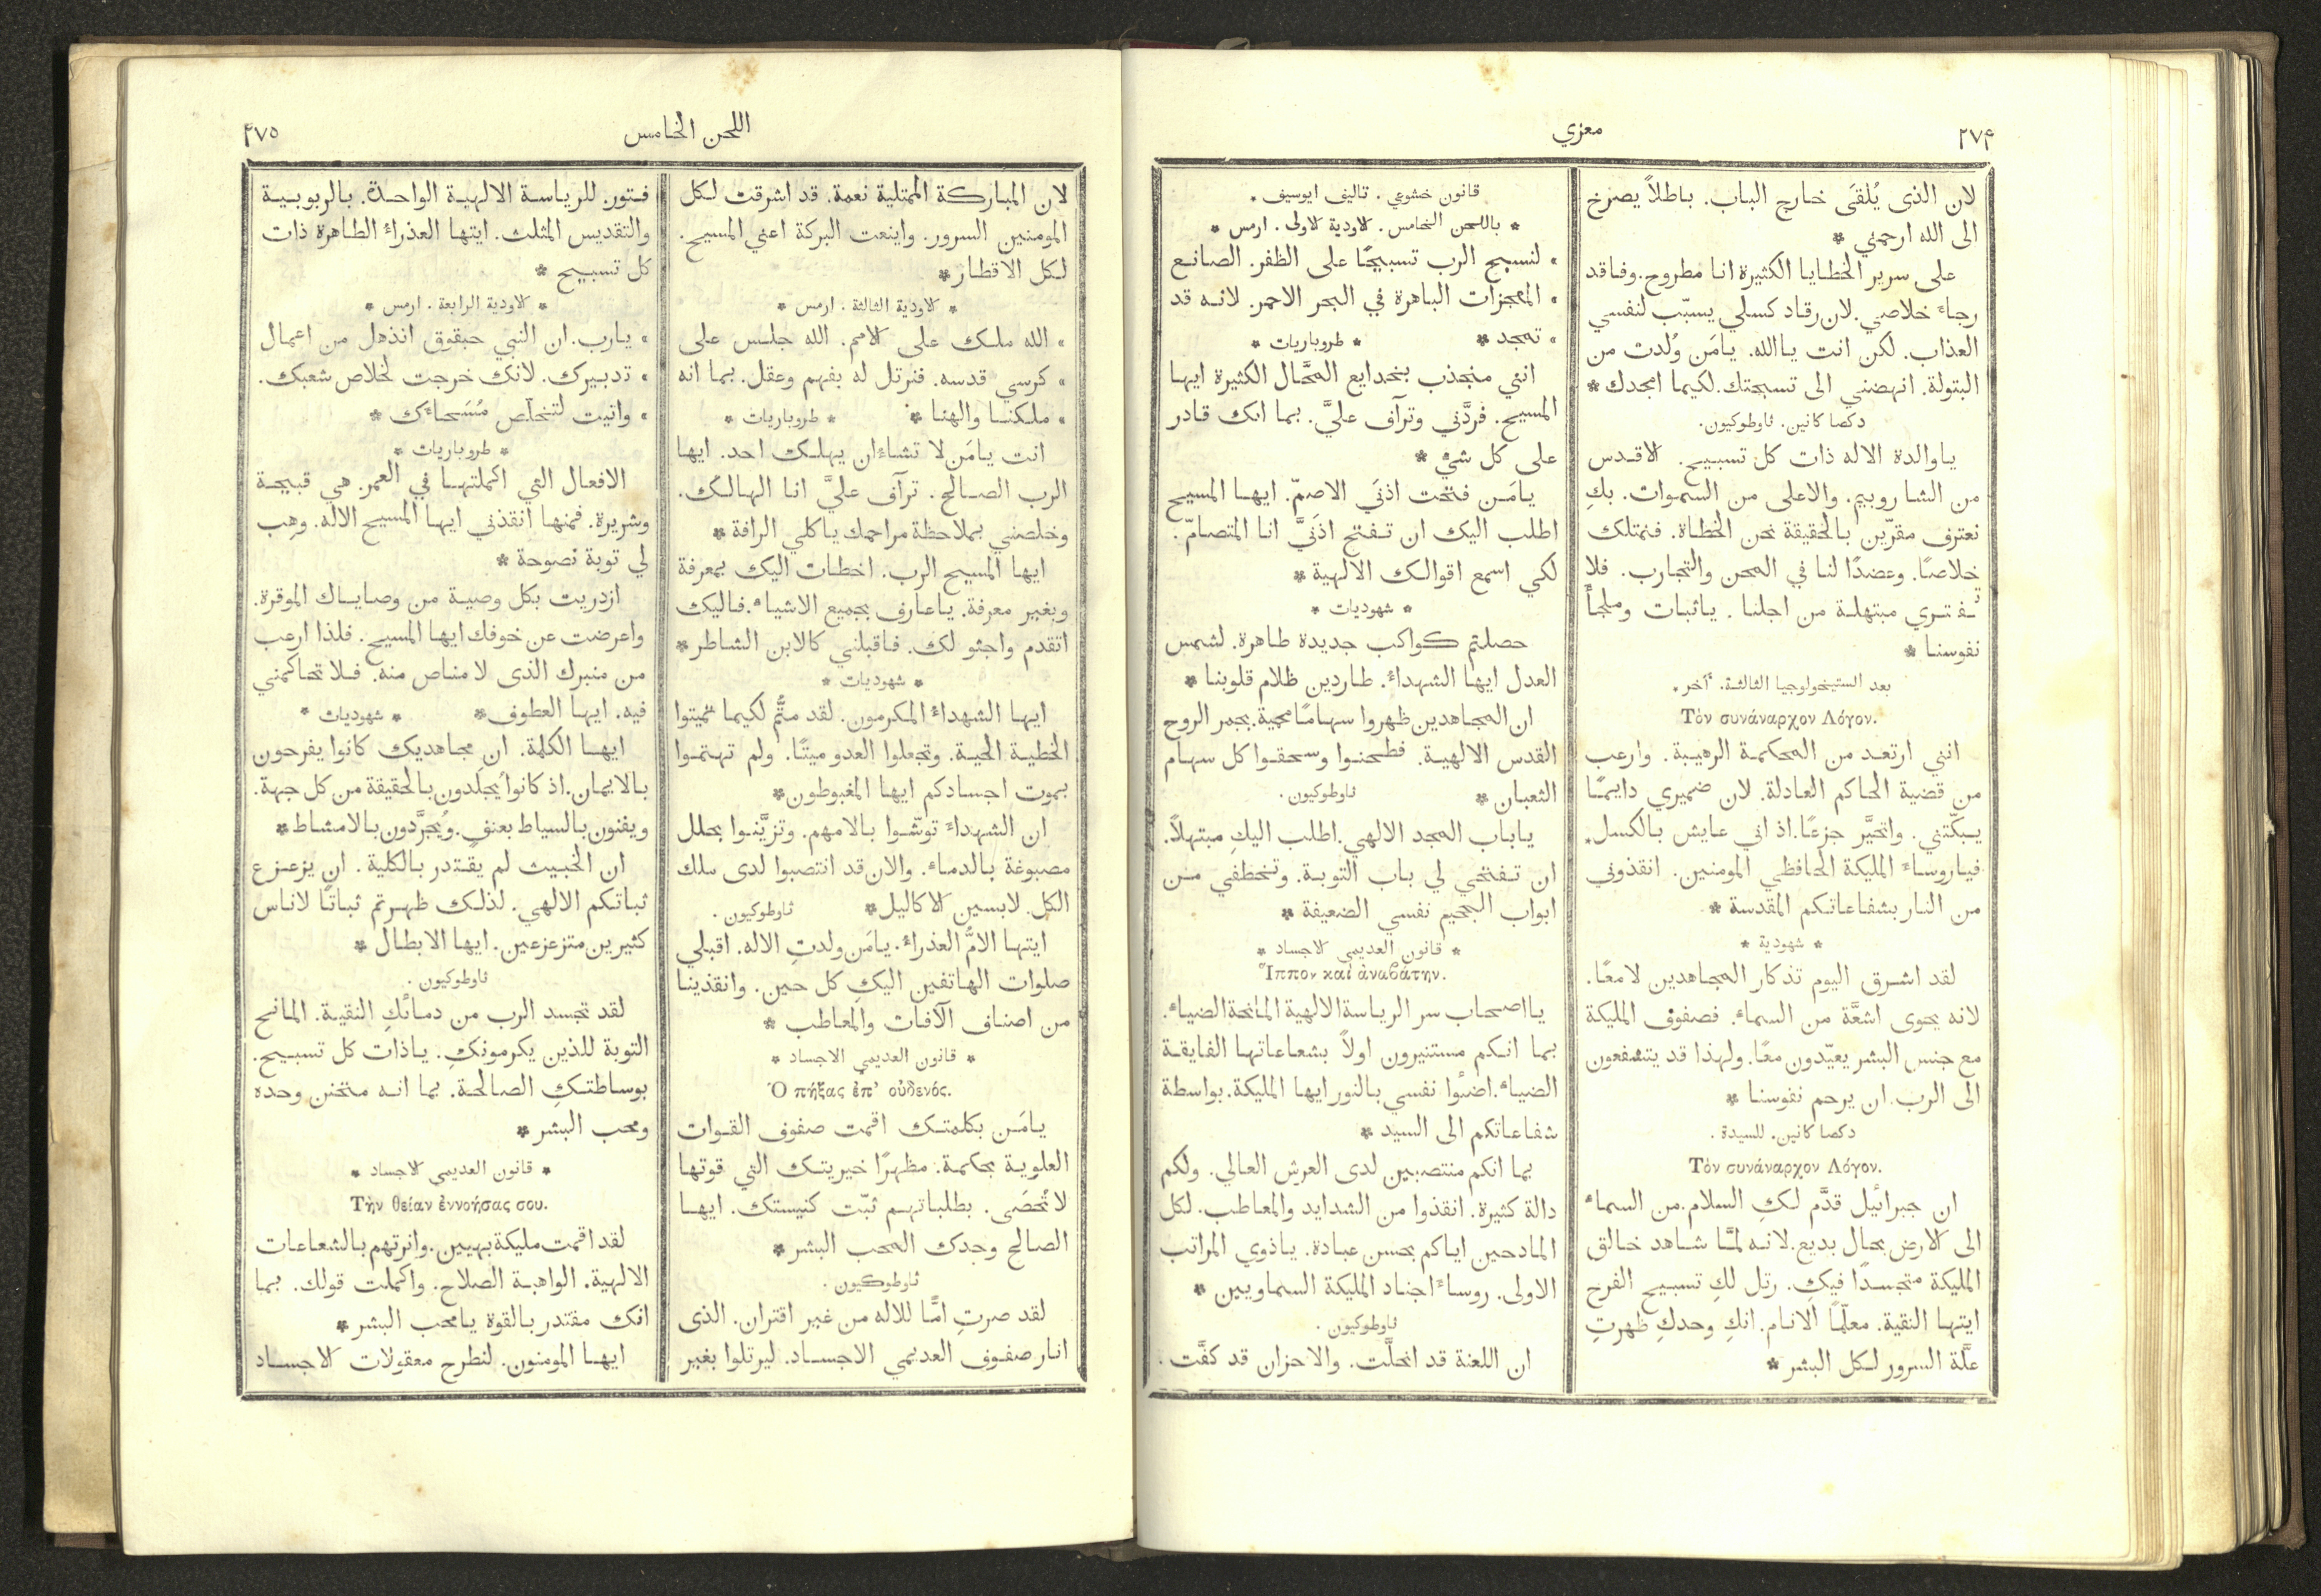 ٢٧٤
معزي
لان الذى يُلقَى خارج الباب. باطلاً يصرخ
الى الله ارحمني *
على سرير الخطايا الكثيرة انا مطروح. وفاقد
رجاءَ خلاصي. لان رقاد كسلي يسبّب لنفسي
العذاب. لكن انت يا الله. يامَن وُلدت من
البتولة. انهضني الى تسبحتك. لكيما امجدك *
دكصا كانين. ثاوطوكيون.
ياوالدة الاله ذات كل تسبيح. الاقدس
من الشاروبيم. والاعلى من السموات. بكِ
نعترف مقرّين بالحقيقة نحن الخطاة. فنمتلك
خلاصًا. وعضدًا لنا في المحن والتجارب. فلا
تفتري مبتهلة من اجلنا. ياثبات وملجأَ
نفوسنا *
بعد الستيخولوجيا الثالثة. آخر.
Τὸν συνάναρχον Λόγον.
انني ارتعد من المحكمة الرهيبة. وارعب
من قضية الحاكم العادلة. لان ضميري دايمًا
يبكّتني. واتحيَّر جزعًا. اذ اني عايش بالكسل.
فياروساءَ المليكة الحافظي المومنين. انقذوني
من النار بشفاعاتكم المقدسة *
* شهودية *
لقد اشرق اليوم تذكار المجاهدين لامعًا.
لانه يحوى اشعَّة من السماء. فصفوف المليكة
مع جنس البشر يعيّدون معًا. ولهذا قد يتشفعون
الى الرب. ان يرحم نفوسنا *
دكصا كانين. للسيدة.
Τὸν συνάναρχον Λόγον.
ان جبرائيل قدَّم لكِ السلام. من السماء
الى الارض بحال بديع. لانه لمَّا شاهد خالق
المليكة متجسدًا فيكِ. رتل لكِ تسبيح الفرح
ايتها النقية. معلّمًا الانام. انكِ وحدكِ ظهرتِ
علَّة السرور لكل البشر *
قانون خشوعي. تاليف ايوسيف.
* باللحن الخامس. الاودية الاولى. ارمس *
» لنسبح الرب تسبيحًا على الظفر. الصانع
» المعجزات الباهرة في البحر الاحمر. لانه قد
» تمجد * * طروباريات *
انني منجذب بخدايع المحَّال الكثيرة ايها
المسيح. فردَّني وترآف عليَّ. بما انك قادر
على كل شيٍّ *
يامَن فتحت اذنَي الاصمّ. ايها المسيح
اطلب اليك ان تفتح اذنَيَّ انا المتصامّ.
لكي اسمع اقوالك الالهية *
* شهوديات *
حصلتم كواكب جديدة طاهرة. لشمس
العدل ايها الشهداءُ. طاردين ظلام قلوبنا *
ان المجاهدين ظهروا سهامًا محمية. بجمر الروح
القدس الالهية. فطحنوا وسحقوا كل سهام
الثعبان * ثاوطوكيون.
ياباب المجد الالهي. اطلب اليكِ مبتهلاً.
ان تفتحي لي باب التوبة. وتخطفي من
ابواب الجحيم نفسي الضعيفة *
* قانون العديمي الاجساد *
Ἵππον καὶ ἀναβάτην.
يااصحاب سر الرياسة الالهية المانحة الضياء.
بما انكم مستنيرون اولاً بشعاعاتها الفايقة
الضياء. اضئوا نفسي بالنور ايها المليكة. بواسطة
شفاعاتكم الى السيد *
بما انكم منتصبين لدى العرش العالي. ولكم
دالة كثيرة. انقذوا من الشدايد والمعاطب. لكل
المادحين اياكم بحسن عبادة. ياذوي المراتب
الاولى. روساءَ اجناد المليكة السماويين *
ثاوطوكيون.
ان اللعنة قد انحلَّت. والاحزان قد كفَّت.
اللحن الخامس
٢٧٥
لان المباركة الممتلية نعمة. قد اشرقت لكل
المومنين السرور. واينعت البركة اعني المسيح.
لكل الاقطار *
* الاودية الثالثة. ارمس *
» الله ملك على الامم. الله جلس على
» كرسي قدسه. فنرتل له بفهم وعقل. بما انه
» ملكنا والهنا * * طروباريات *
انت يامَن لا تشاءُ ان يهلك احد. ايها
الرب الصالح. ترآف عليَّ انا الهالك.
وخلصني بملاحظة مراحمك ياكلي الرافة *
ايها المسيح الرب. اخطات اليك بمعرفة
وبغير معرفة. ياعارف بجميع الاشياء. فاليك
اتقدم واجثو لك. فاقبلني كالابن الشاطر *
* شهوديات *
ايها الشهداءُ المكرمون. لقد متُّم لكيما تميتوا
الخطية الحية. وتجعلوا العدو ميتًا. ولم تهتموا
بموت اجسادكم ايها المغبوطون *
ان الشهداءَ توشّوا بالامهم. وتزيَّنوا بحلل
مصبوغة بالدماء. والان قد انتصبوا لدى ملك
الكل. لابسين الاكاليل * ثاوطوكيون.
ايتها الامُّ العذراءُ. يامَن ولدتِ الاله. اقبلي
صلوات الهاتفين اليكِ كل حين. وانقذينا
من اصناف الآفات والمعاطب *
* قانون العديمي الاجساد *
Ὁ πήξας ἐπ' οὐδενός.
يامَن بكلمتك اقمت صفوف القوات
العلوية بحكمة. مظهرًا خيريتك التي قوتها
لا تُحصَى. بطلباتهم ثبّت كنيستك. ايها
الصالح وحدك المحب البشر *
ثاوطوكيون.
لقد صرتِ امًّا للاله من غير اقتران. الذى
انار صفوف العديمي الاجساد. ليرتلوا بغير
فتور. للرياسة الالهية الواحدة. بالربوبية
والتقديس المثلث. ايتها العذراءُ الطاهرة ذات
كل تسبيح *
* الاودية الرابعة. ارمس *
» يارب. ان النبي حبقوق انذهل من اعمال
» تدبيرك. لانك خرجت لخلاص شعبك.
» واتيت لتخلّص مُسَحاءَك *
* طروباريات *
الافعال التي اكملتها في العمر. هي قبيحة
وشريرة. فمنها انقذني ايها المسيح الاله. وهِب
لي توبة نصوحة *
ازدريت بكل وصية من وصاياك الموقرة.
واعرضت عن خوفك ايها المسيح. فلذا ارعب
من منبرك الذى لا مناص منه. فلا تحاكمني
فيه. ايها العطوف * * شهوديات *
ايها الكلمة. ان مجاهديك كانوا يفرحون
بالايمان. اذ كانوا يُجلَدون بالحقيقة من كل جهة.
ويفنون بالسياط بعنفٍ. ويُجرَّدون بالامشاط *
ان الخبيث لم يقتدر بالكلية. ان يزعزع
ثباتكم الالهي. لذلك ظهرتم ثباتًا لاناس
كثيرين متزعزعين. ايها الابطال *
ثاوطوكيون.
لقد تجسد الرب من دمائكِ النقية. المانح
التوبة للذين يكرمونكِ. ياذات كل تسبيح.
بوساطتكِ الصالحة. بما انه متحنن وحده
ومحب البشر *
* قانون العديمي الاجساد *
Τὴν θείαν ἐννοήσας σου.
لقد اقمت مليكة بهيين. وانرتهم بالشعاعات
الالهية. الواهبة الصلاح. واكملت قولك. بما
انك مقتدر بالقوة يامحب البشر *
ايها المومنون. لنطرح معقولات الاجساد